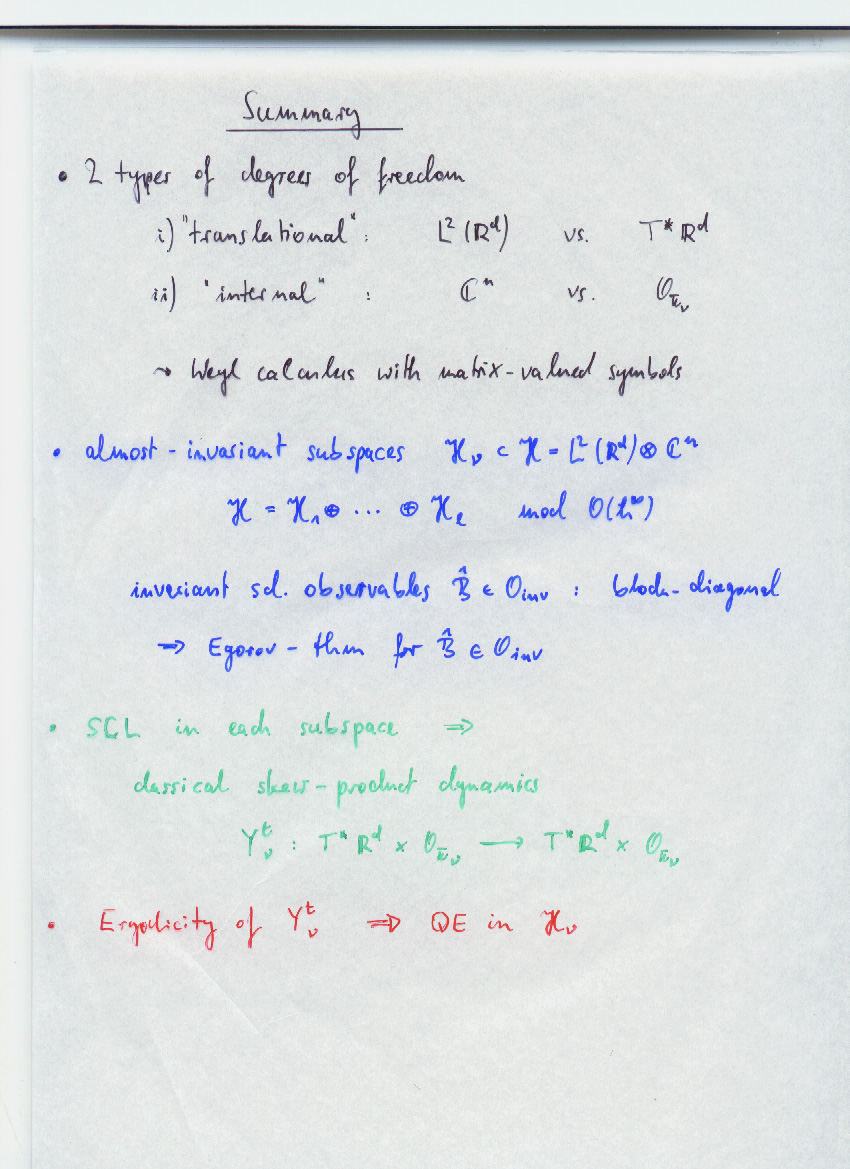 Summary
• 2 types of degrees of freedom
i) "translational" : L² (ℝᵈ) vs. T* ℝᵈ
ii) "internal" : ℂⁿ vs. 𝒪_π̄ᵥ
⤳ Weyl calculus with matrix-valued symbols
• almost-invariant subspaces ℋ_ν ⊂ ℋ = L² (ℝᵈ) ⊗ ℂⁿ
ℋ = ℋ₁ ⊕ ··· ⊕ ℋ_ℓ mod O(ℏ^∞)
invariant scl. observables B̂ ∈ 𝒪_inv : block-diagonal
⇒ Egorov-thm for B̂ ∈ 𝒪_inv
• SCL in each subspace ⇒
classical skew-product dynamics
Y_ν^t : T*ℝᵈ × 𝒪_π̄ᵥ ⟶ T*ℝᵈ × 𝒪_π̄ᵥ
• Ergodicity of Y_ν^t ⇒ QE in ℋ_ν